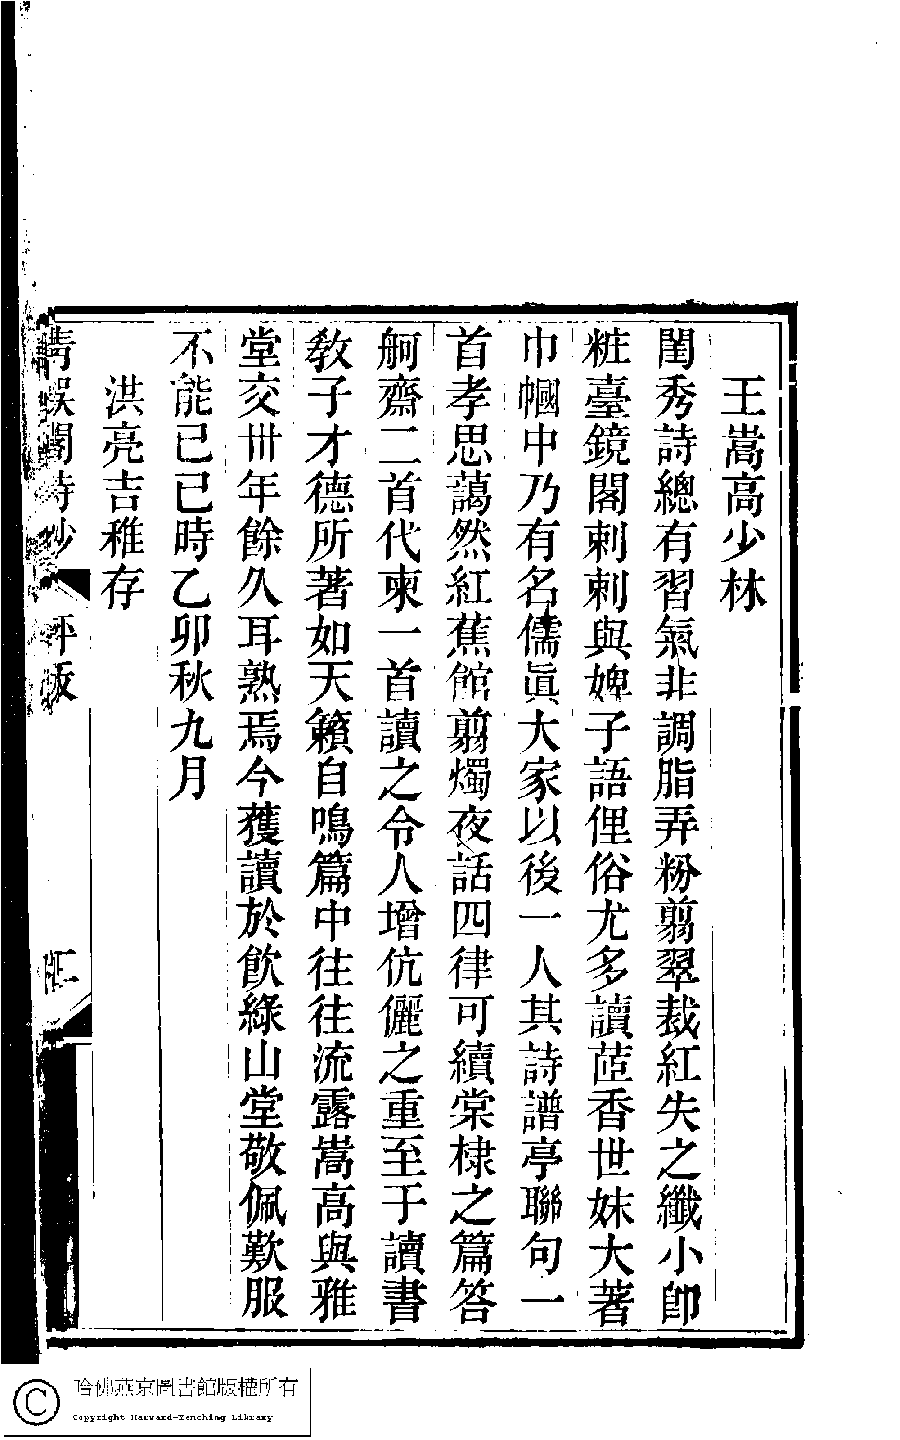 王嵩高少林
閨秀詩總有習氣非調脂弄粉翦翠裁紅失之纖小卽
粧臺鏡閣刺刺與婢子語俚俗尤多讀茝香世妹大著
巾幗中乃有名儒眞大家以後一人其詩譜亭聯句一
首孝思藹然紅蕉館翦燭夜話四律可續棠棣之篇答
舸齋二首代柬一首讀之令人增伉儷之重至于讀書
敎子才德所著如天籟自鳴篇中往往流露嵩高與雅
堂交卅年餘久耳熟焉今獲讀於飮綠山堂敬佩歎服
不能已已時乙卯秋九月
洪亮吉稚存
靑娛閣詩鈔
評跋
哈佛燕京圖書館版權所有
Copyright Harvard-Yenching Library